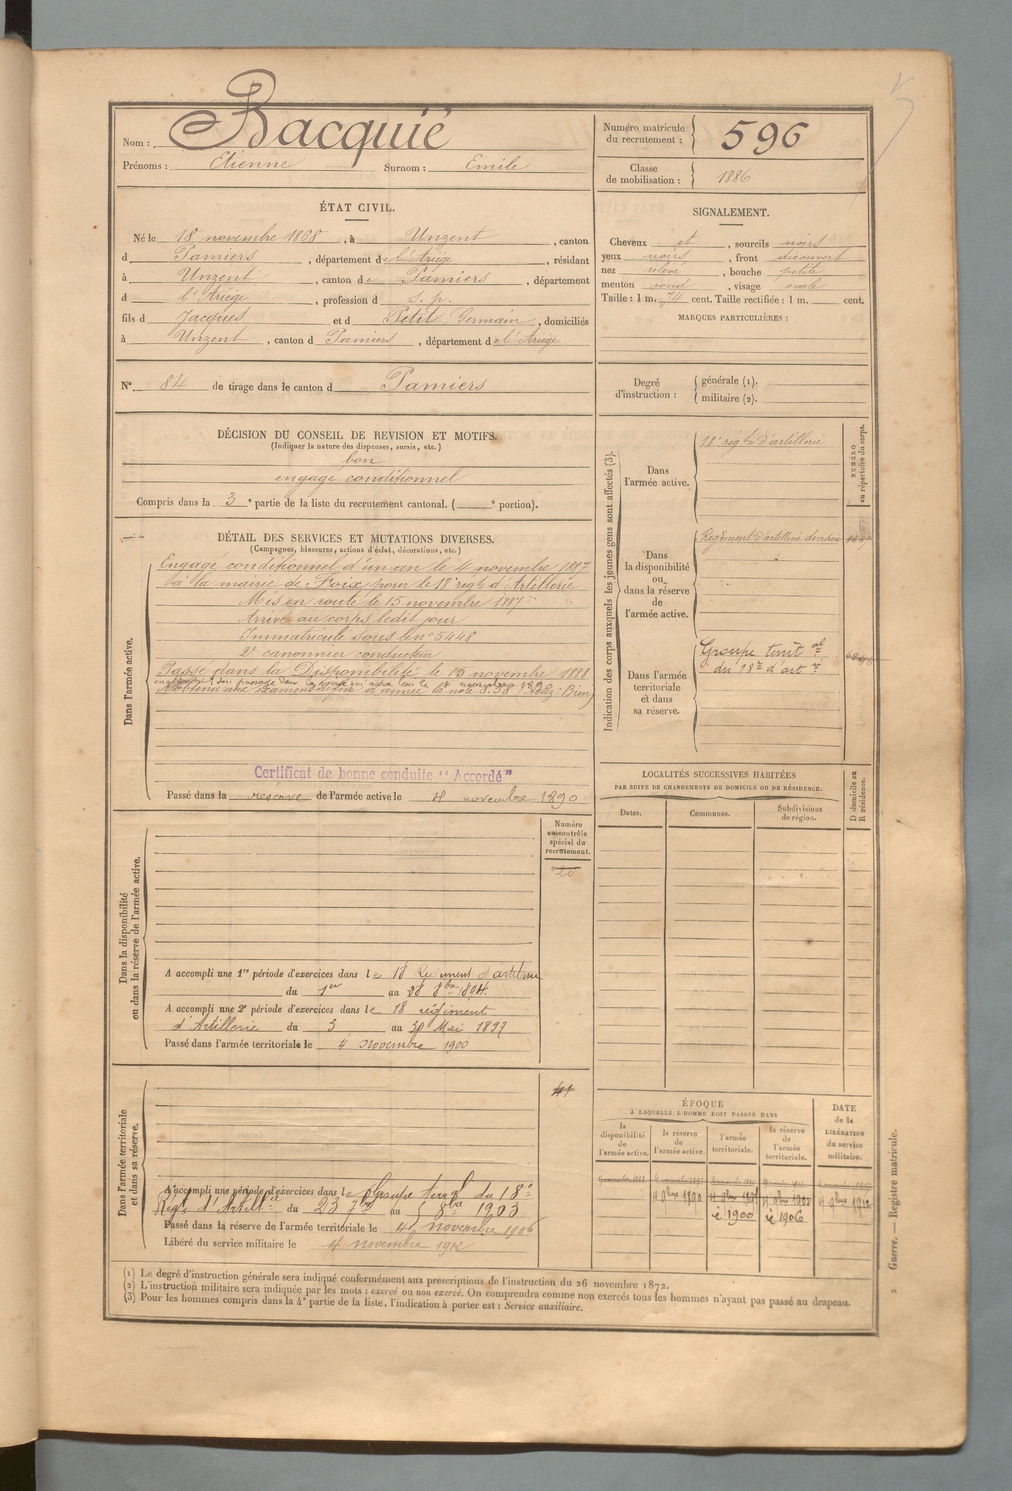 Nom : Bacquié
Prénoms : Etienne Surnom : Emile
Numéro matricule du recrutement : 596
Classe de mobilisation : 1886
ÉTAT CIVIL.
Né le 18 novembre 1868, à Unzent, canton
d Pamiers, département de l'Ariège, résidant
à Unzent, canton de Pamiers, département
d l'Ariège, profession d s. p.
fils d Jacques et d Petit Germain, domiciliés
à Unzent, canton d Pamiers, département de l'Ariège
N° 84 de tirage dans le canton d Pamiers
SIGNALEMENT.
Cheveux et, sourcils noirs
yeux noirs, front découvert
nez relevé, bouche petite
menton rond, visage ovale
Taille : 1 m. 74 cent. Taille rectifiée : 1 m. cent.
MARQUES PARTICULIÈRES :
Degré d'instruction : générale (1).
militaire (2).
DÉCISION DU CONSEIL DE REVISION ET MOTIFS.
(Indiquer la nature des dispenses, sursis, etc.)
bon
engagé conditionnel
Compris dans la 3e partie de la liste du recrutement cantonal. ( e portion).
DÉTAIL DES SERVICES ET MUTATIONS DIVERSES.
(Campagnes, blessures, actions d'éclat, décorations, etc.)
Dans l'armée active.
Engagé conditionnel d'un an le 4 novembre 1887
à la mairie de Foix pour le 18e régt d'Artillerie
Mis en route le 15 novembre 1887
Arrivé au corps ledit jour
Immatriculé sous le n° 5448
2e canonnier conducteur
Passé dans la Disponibilité le 15 novembre 1888
son passage dans la réserve qui aura lieu le novembre 1890
obtenu aux examens de fin d'année la note 8.38 (Assez Bien)
Certificat de bonne conduite "Accordé"
Passé dans la réserve de l'armée active le 4 novembre 1890
Indication des corps auxquels les jeunes gens sont affectés (3).
NUMÉRO au répertoire du corps.
Dans l'armée active.
18e régt d'artillerie
Dans la disponibilité ou dans la réserve de l'armée active.
Régiment d'artillerie
Dans l'armée territoriale et dans sa réserve.
Groupe territal
du 18e d'artie
LOCALITÉS SUCCESSIVES HABITÉES
PAR SUITE DE CHANGEMENTS DE DOMICILE OU DE RÉSIDENCE.
Dates. Communes. Subdivisions de région. D domicile ou R résidence.
Dans la disponibilité ou dans la réserve de l'armée active.
Numéro au contrôle spécial du recrutement.
26
A accompli une 1re période d'exercices dans le 18 Régiment d'artillerie
du 1er au 28 8bre 1894.
A accompli une 2e période d'exercices dans le 18 régiment
d'Artillerie du 3 au 30 Mai 1897
Passé dans l'armée territoriale le 4 novembre 1900
Dans l'armée territoriale et dans sa réserve.
41
A accompli une période d'exercices dans le Groupe terral du 18e
Régt d'Artillie du 23 7bre au 5 8bre 1903
Passé dans la réserve de l'armée territoriale le 4 novembre 1906
Libéré du service militaire le 4 novembre 1912
ÉPOQUE
À LAQUELLE L'HOMME DOIT PASSER DANS
la disponibilité de l'armée active. la réserve de l'armée active. l'armée territoriale. la réserve de l'armée territoriale.
DATE de la LIBÉRATION du service militaire.
4 9bre 1890
1900 1906
4 9bre 1912
(1) Le degré d'instruction générale sera indiqué conformément aux prescriptions de l'instruction du 26 novembre 1872.
(2) L'instruction militaire sera indiquée par les mots : exercé ou non exercé. On comprendra comme non exercés tous les hommes n'ayant pas passé au drapeau.
(3) Pour les hommes compris dans la 4e partie de la liste, l'indication à porter est : Service auxiliaire.
Guerre. — Registre matricule.